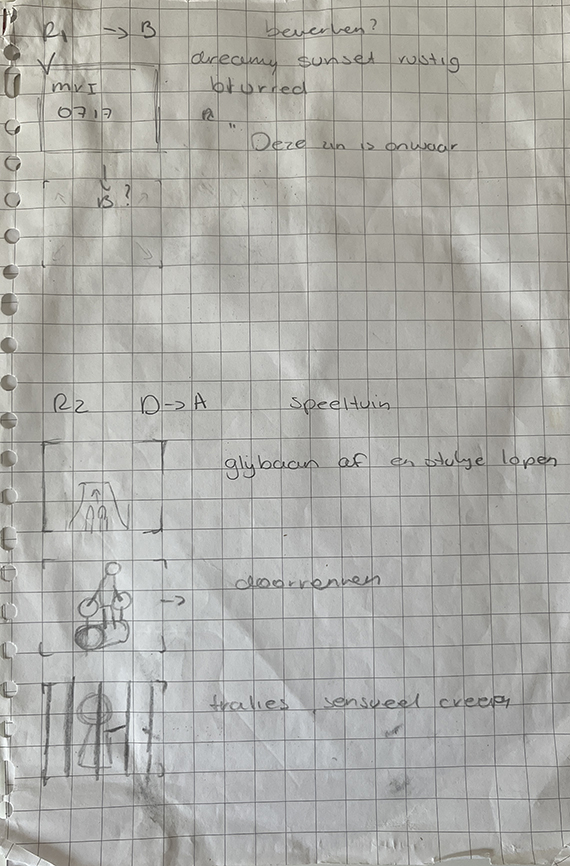 R1 → B bewerken?
dreamy sunset rustig
MVI blurred
0717
"
Deze zin is onwaar
B?
R2 D → A speeltuin
glijbaan af en stukje lopen
doorrennen
→
tralies, sensueel creepy